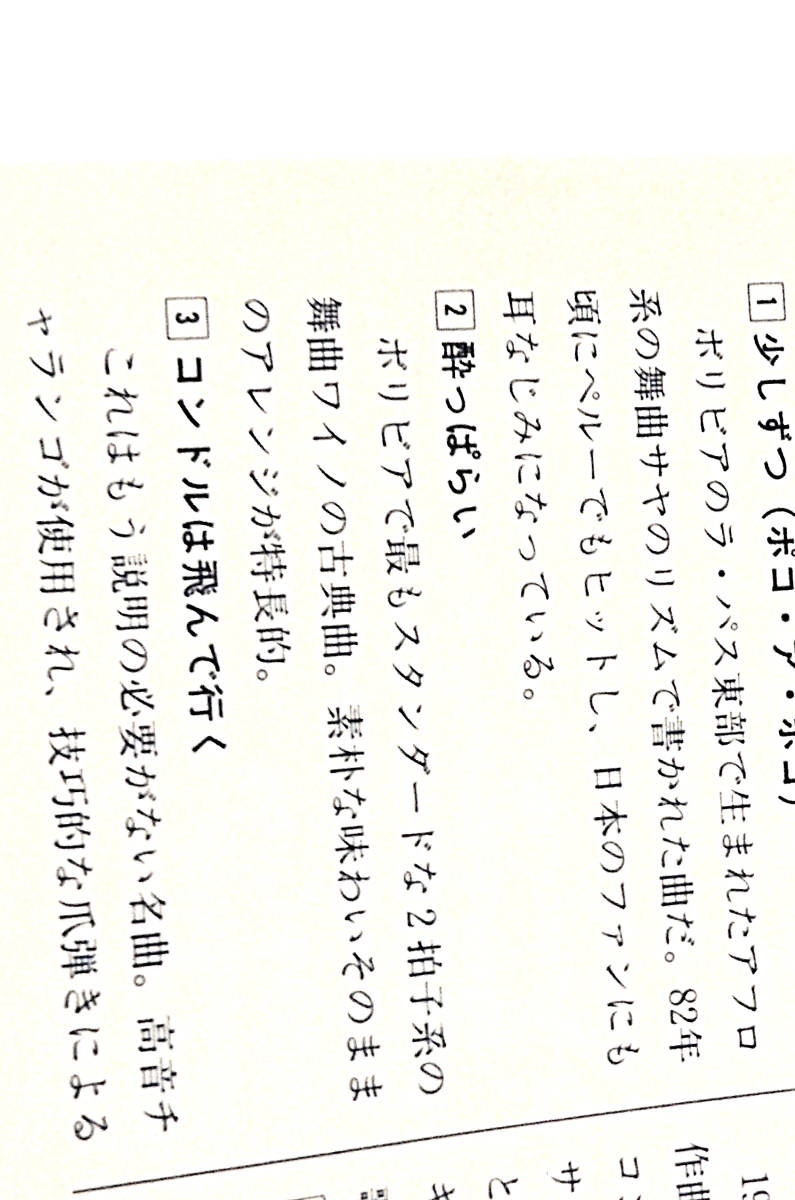 1 少しずつ（ポコ・ア・ポコ）
ボリビアのラ・パス東部で生まれたアフロ
系の舞曲サヤのリズムで書かれた曲だ。82年
頃にペルーでもヒットし、日本のファンにも
耳なじみになっている。
2 酔っぱらい
ボリビアで最もスタンダードな2拍子系の
舞曲ワイノの古典曲。素朴な味わいそのまま
のアレンジが特長的。
3 コンドルは飛んで行く
これはもう説明の必要がない名曲。高音チ
ャランゴが使用され、技巧的な爪弾きによる
19
作曲
コン
サ
と
キ